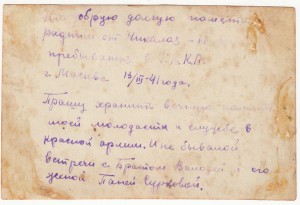 на добрую долгую память
родным от Николая
пребывания в
г. Москва 15/III-41 года.
Прашу хранить вечную память
моей молодасти и службе в
красной армии. И не бывалой
встречи с Братом Володей и его
женой Таней Сурковой.